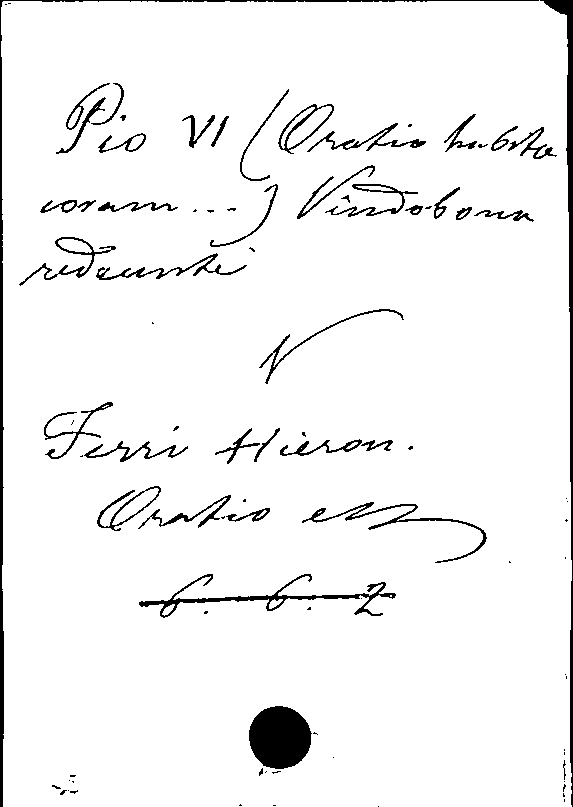 Pio VI (Oratio habita
coram ...) Vindobona
redeunte
V
Ferri Hieron.
Oratio etc
6. 6. 2